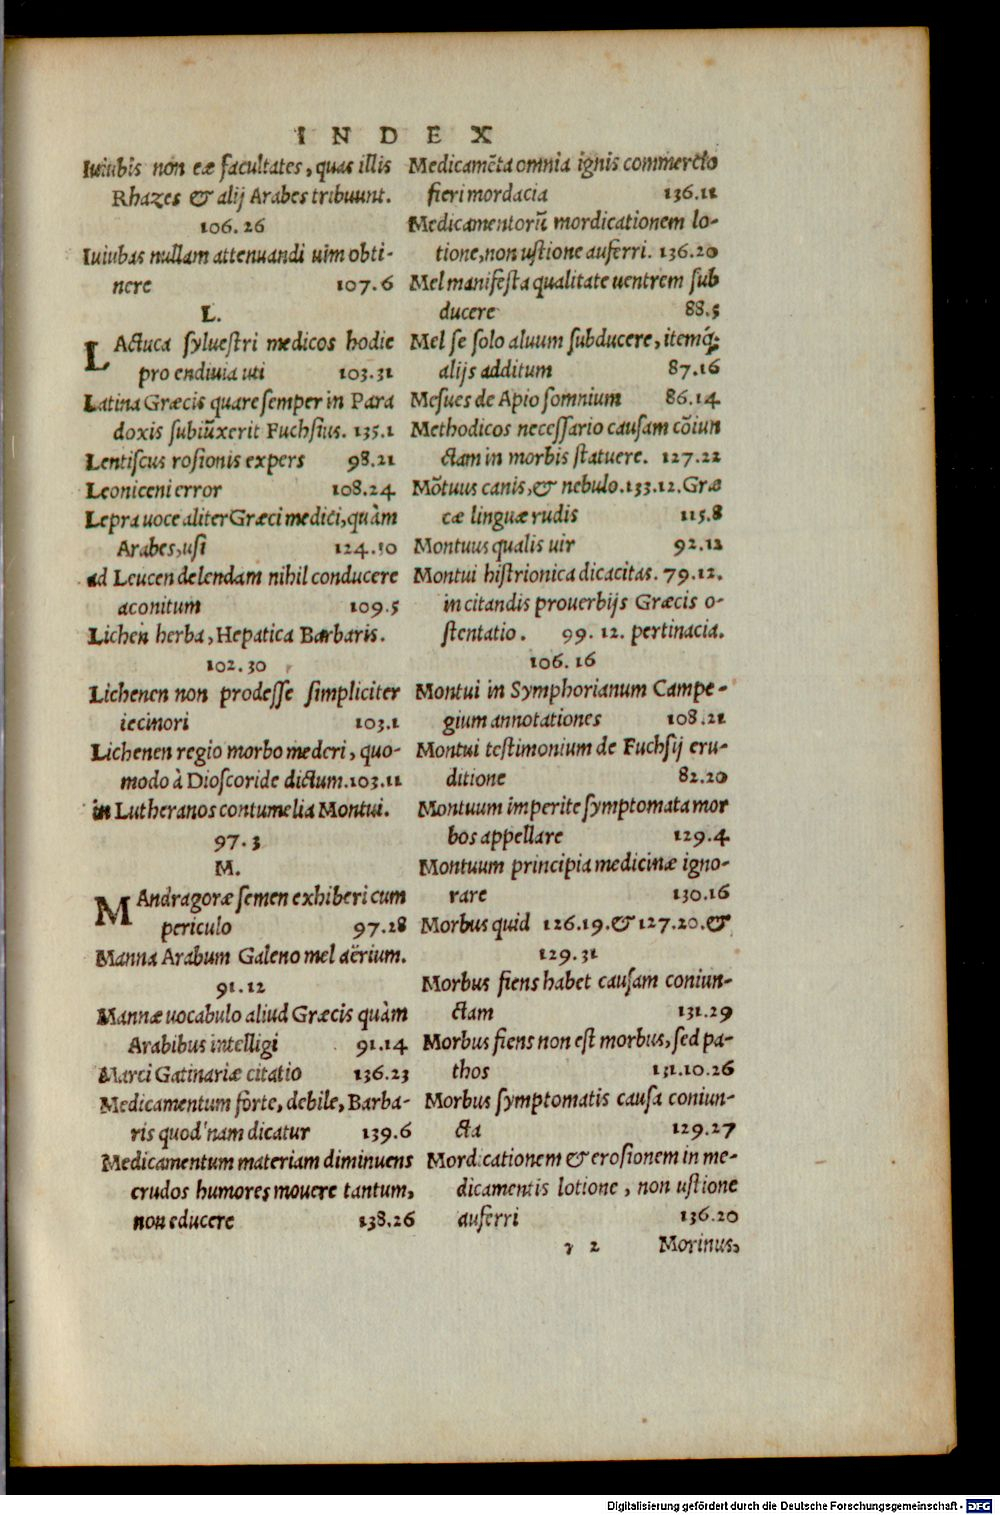 INDEX
Iuiubis non eæ facultates, quas illis
Rhazes & alij Arabes tribuunt.
106.26
Iuiubas nullam attenuandi uim obti-
nere 107.6
L.
LActuca syluestri medicos hodie
pro endiuia uti 103.31
Latina Græcis quare semper in Para
doxis subiũxerit Fuchsius. 135.1
Lentiscus rosionis expers 98.21
Leoniceni error 108.24
Lepra uoce aliter Græci medici, quàm
Arabes, usi 124.30
ad Leucen delendam nihil conducere
aconitum 109.5
Lichen herba, Hepatica Barbaris.
102.30
Lichenen non prodesse simpliciter
iecinori 103.1
Lichenen regio morbo mederi, quo-
modo à Dioscoride dictum. 103.11
in Lutheranos contumelia Montui.
97.3
M.
MAndragoræ semen exhiberi cum
periculo 97.28
Manna Arabum Galeno mel aërium.
91.12
Mannæ uocabulo aliud Græcis quàm
Arabibus intelligi 91.14
Marci Gatinariæ citatio 136.23
Medicamentum forte, debile, Barba-
ris quod'nam dicatur 139.6
Medicamentum materiam diminuens
crudos humores mouere tantum,
non educere 138.26
Medicamẽta omnia ignis commercio
fieri mordacia 136.11
Medicamentorũ mordicationem lo-
tione, non ustione auferri. 136.20
Mel manifesta qualitate uentrem sub
ducere 88.5
Mel se solo aluum subducere, itemq́;
alijs additum 87.16
Mesues de Apio somnium 86.14
Methodicos necessario causam cõiun
ctam in morbis statuere. 127.22
Mõtuus canis, & nebulo. 133.12. Græ
cæ linguæ rudis 115.8
Montuus qualis uir 92.12
Montui histrionica dicacitas. 79.12.
in citandis prouerbijs Græcis o-
stentatio. 99.12. pertinacia.
106.16
Montui in Symphorianum Campe-
gium annotationes 108.21
Montui testimonium de Fuchsij eru-
ditione 82.20
Montuum imperite symptomata mor
bos appellare 129.4
Montuum principia medicinæ igno-
rare 130.16
Morbus quid 126.19. & 127.20. &
129.31
Morbus fiens habet causam coniun-
ctam 131.29
Morbus fiens non est morbus, sed pa-
thos 131.10.26
Morbus symptomatis causa coniun-
cta 129.27
Mordicationem & erosionem in me-
dicamentis lotione, non ustione
auferri 136.20
γ 2 Morinus,
Digitalisierung gefördert durch die Deutsche Forschungsgemeinschaft - DFG